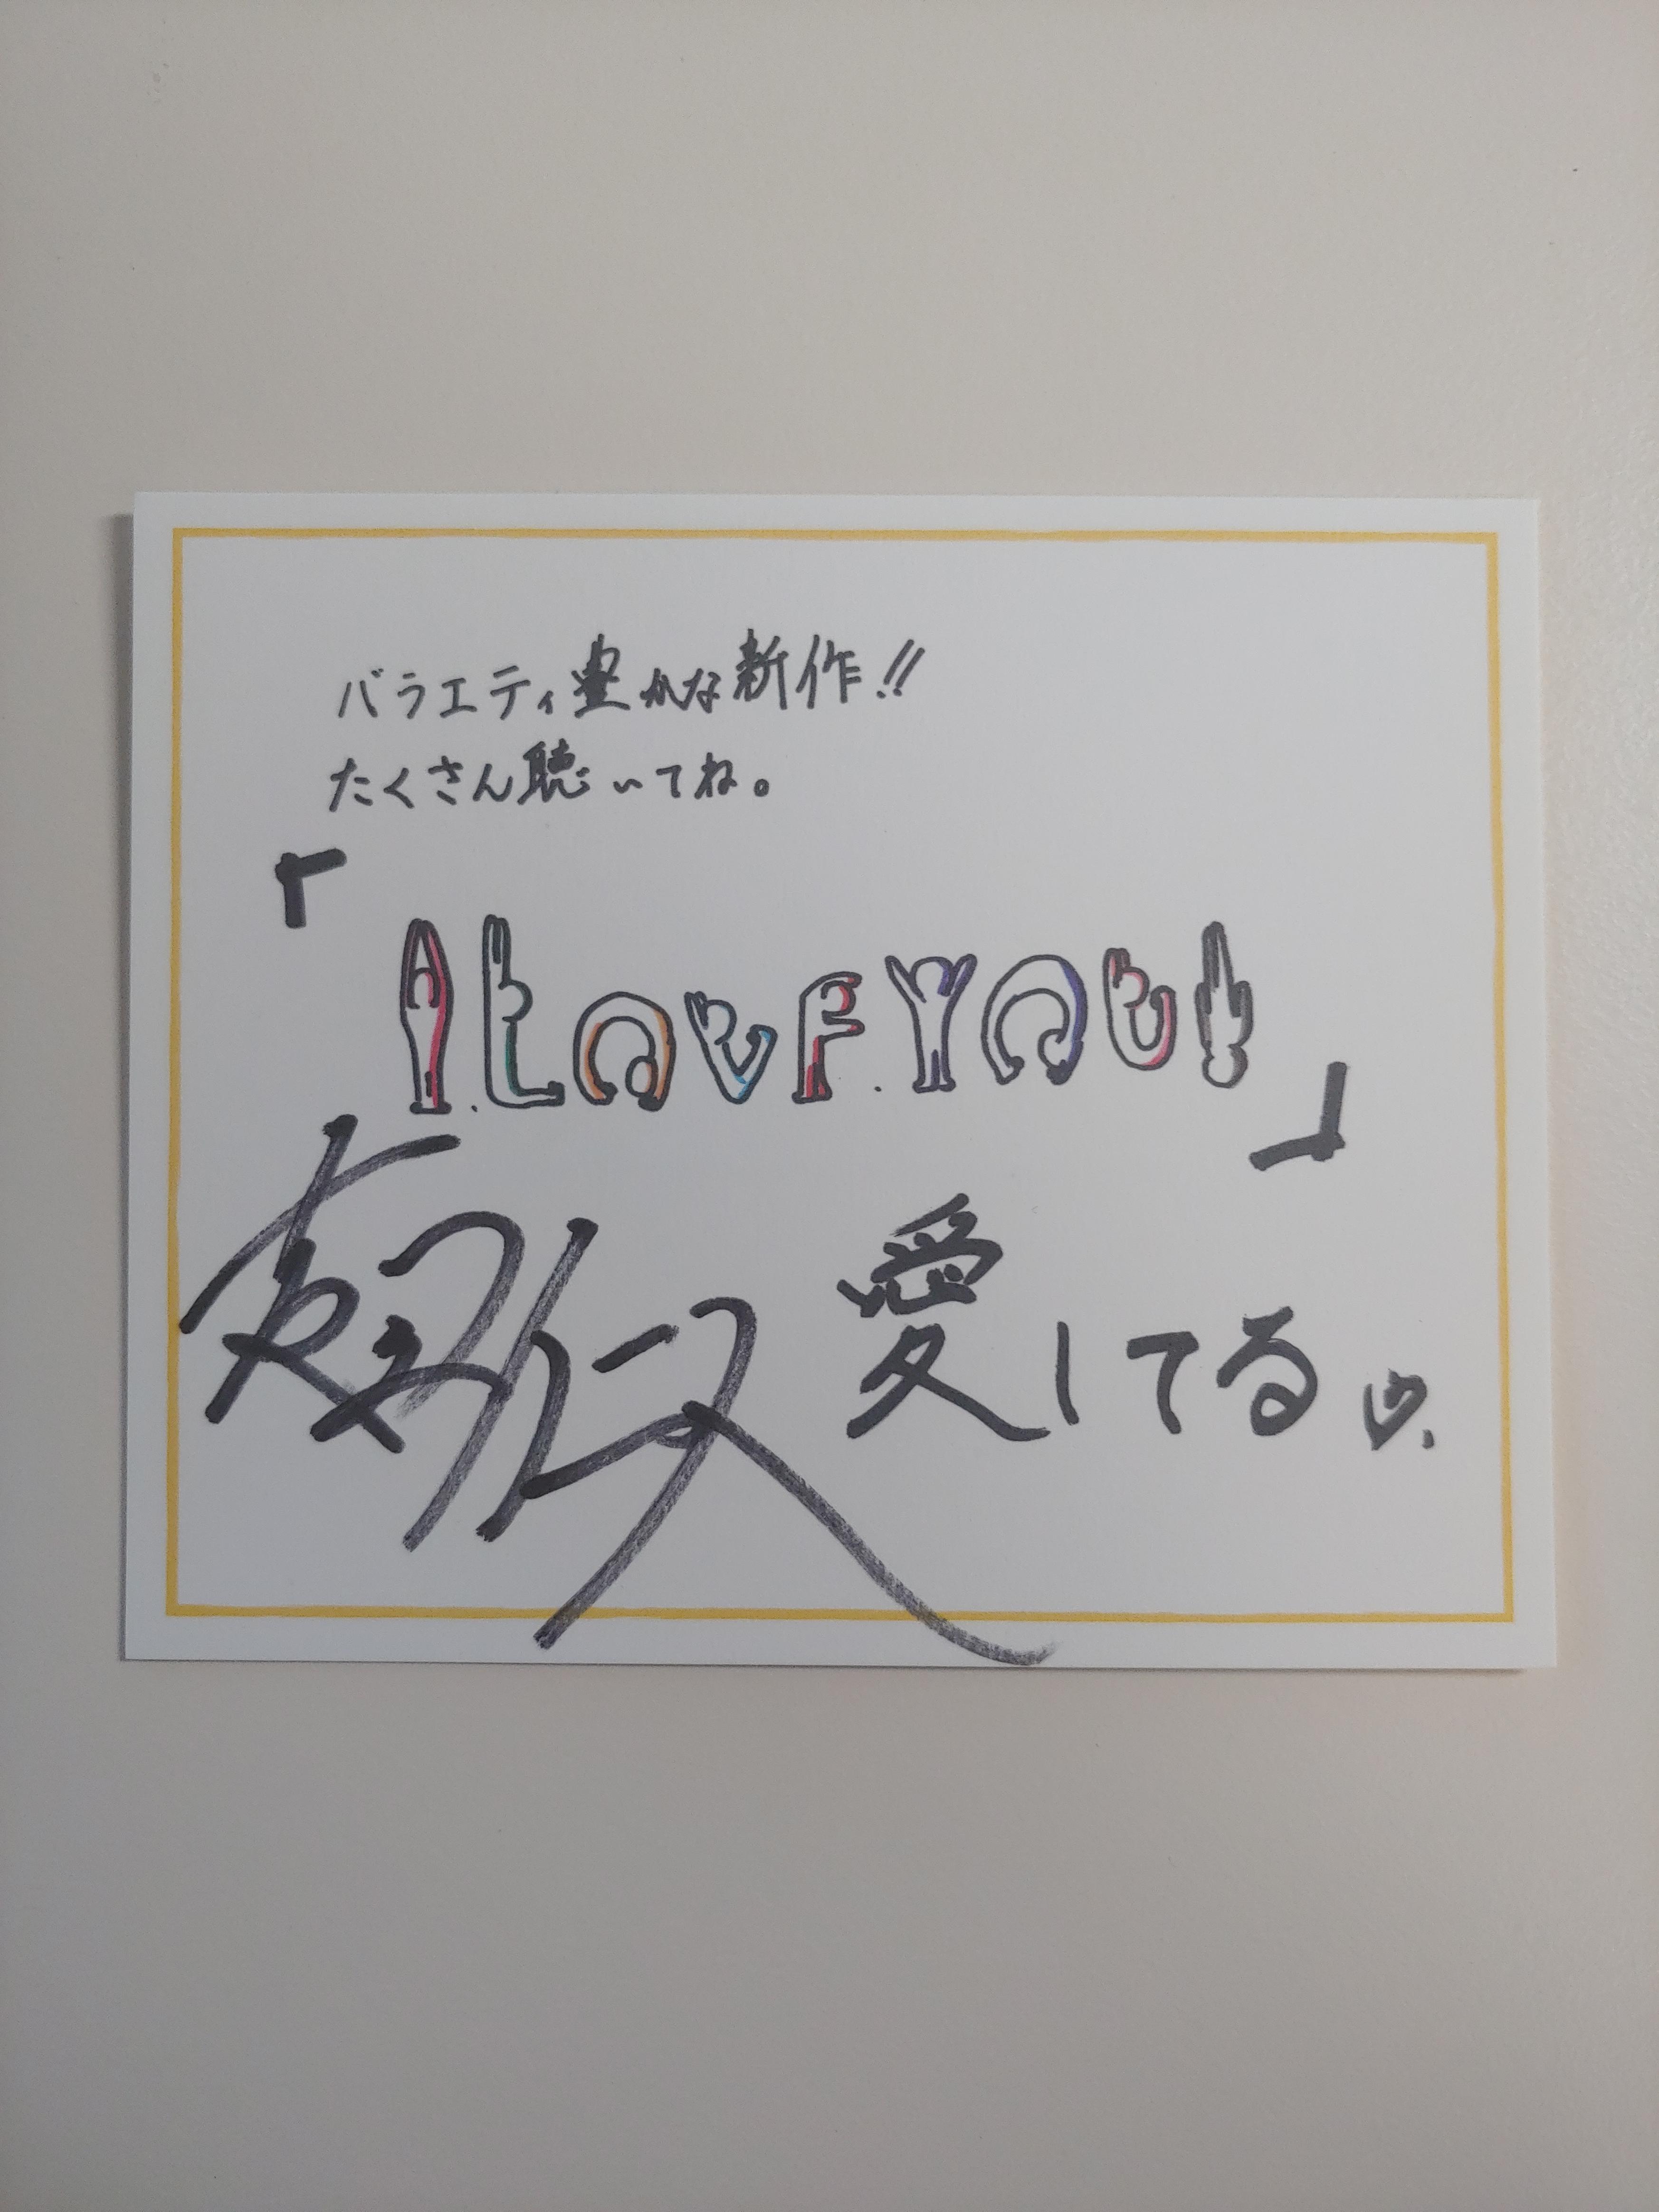 バラエティ豊かな新作!!
たくさん聴いてね。
「I LOVE YOU!」
愛してる